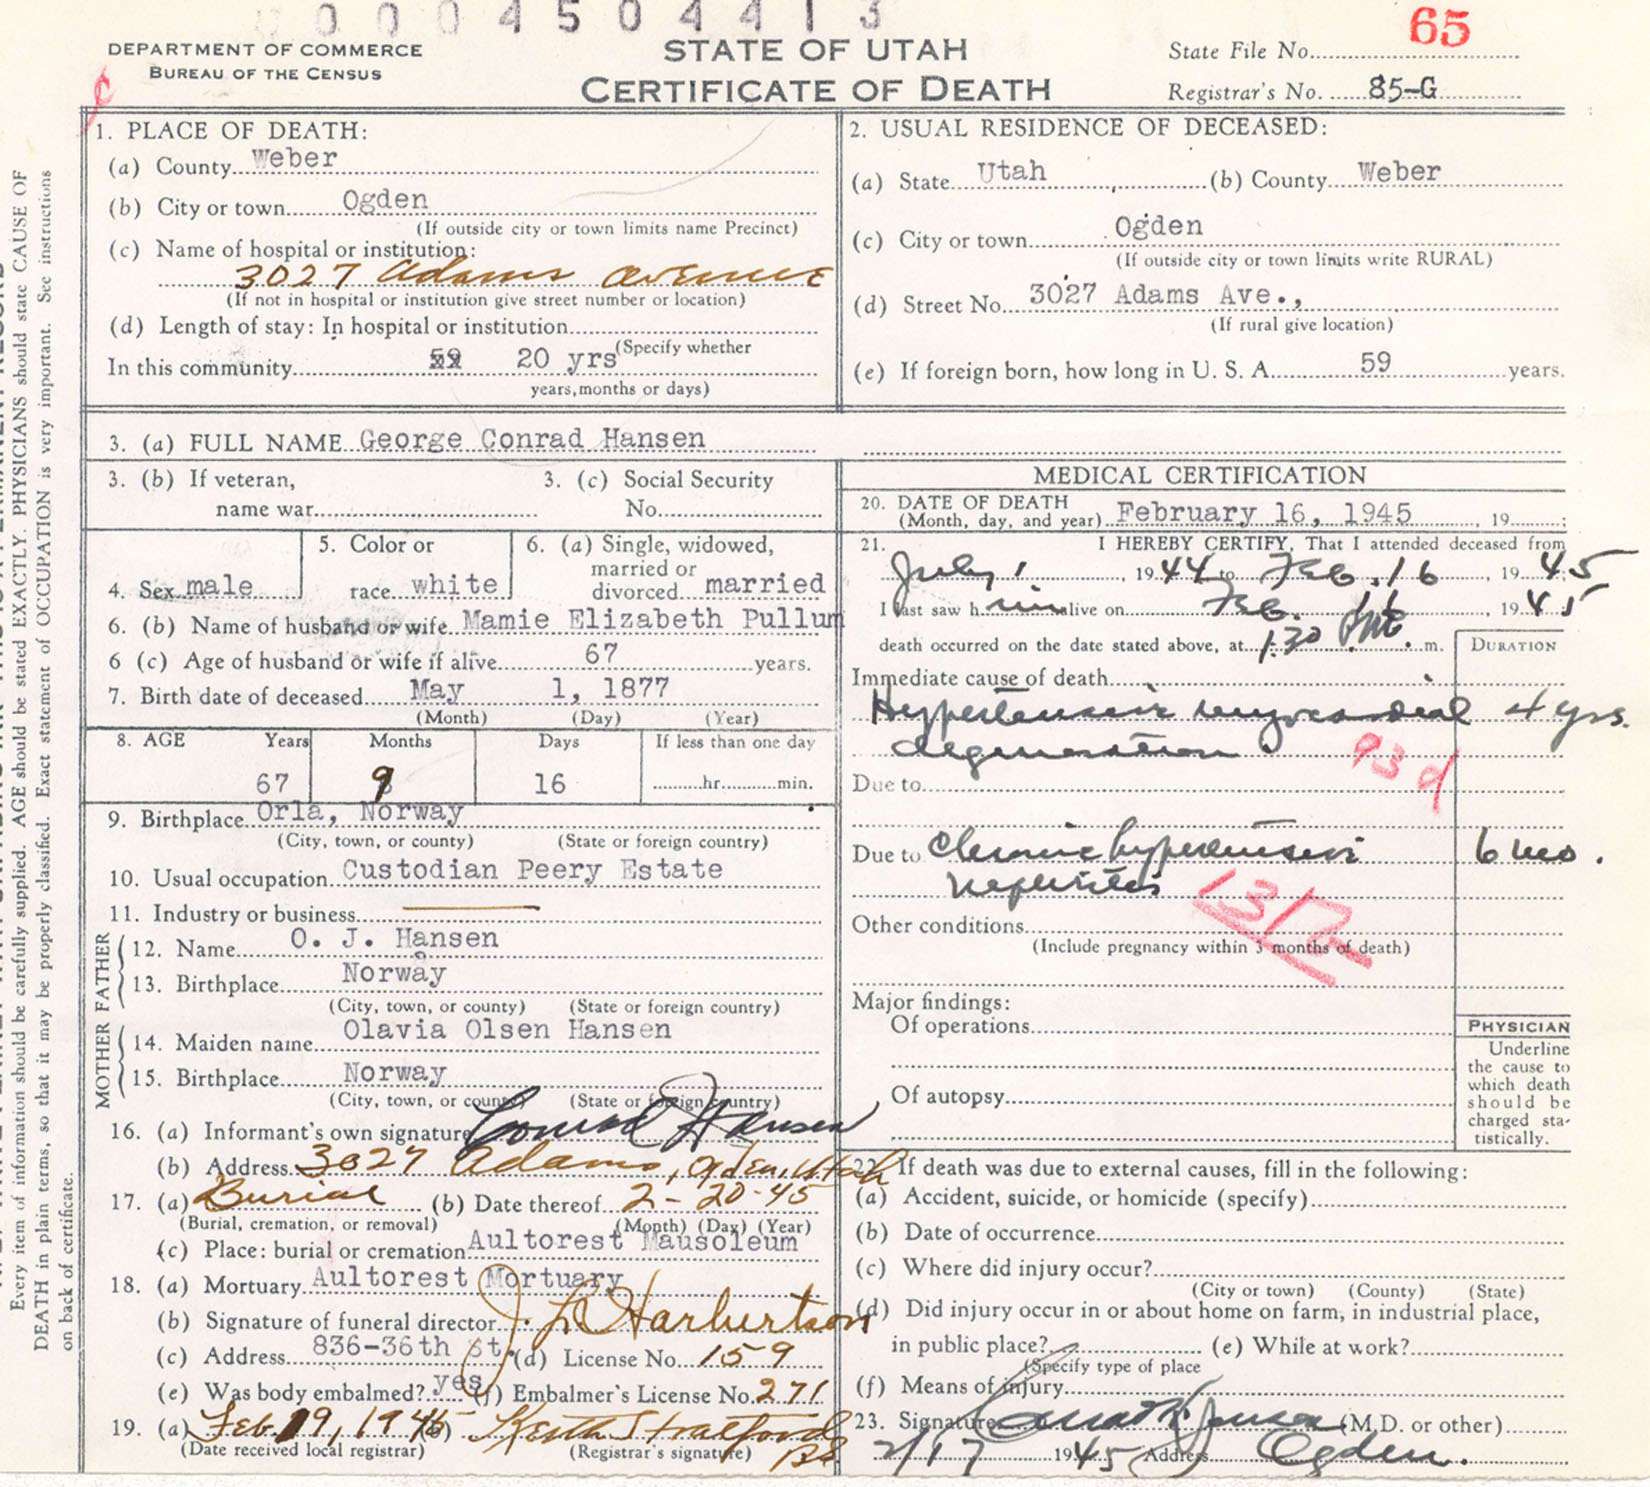 0 0 0 4 5 0 4 4 1 3
DEPARTMENT OF COMMERCE
BUREAU OF THE CENSUS
STATE OF UTAH
CERTIFICATE OF DEATH
State File No. 65
Registrar's No. 85-G
1. PLACE OF DEATH:
(a) County Weber
(b) City or town Ogden
(If outside city or town limits name Precinct)
(c) Name of hospital or institution:
3027 Adams Avenue
(If not in hospital or institution give street number or location)
(d) Length of stay: In hospital or institution
(Specify whether
In this community 20 yrs
years, months or days)
2. USUAL RESIDENCE OF DECEASED:
(a) State Utah (b) County Weber
(c) City or town Ogden
(If outside city or town limits write RURAL)
(d) Street No. 3027 Adams Ave.,
(If rural give location)
(e) If foreign born, how long in U. S. A. 59 years.
3. (a) FULL NAME George Conrad Hansen
3. (b) If veteran, 3. (c) Social Security
name war No.
4. Sex male
5. Color or
race white
6. (a) Single, widowed,
married or
divorced married
6. (b) Name of husband or wife Mamie Elizabeth Pullum
6 (c) Age of husband or wife if alive 67 years.
7. Birth date of deceased May 1, 1877
(Month) (Day) (Year)
8. AGE Years Months Days If less than one day
67 9 16 hr. min.
9. Birthplace Orla, Norway
(City, town, or county) (State or foreign country)
10. Usual occupation Custodian Peery Estate
11. Industry or business
FATHER
12. Name O. J. Hansen
13. Birthplace Norway
(City, town, or county) (State or foreign country)
MOTHER
14. Maiden name Olavia Olsen Hansen
15. Birthplace Norway
(City, town, or county) (State or foreign country)
16. (a) Informant's own signature Conrad J Hansen
(b) Address 3027 Adams, Ogden, Utah
17. (a) Burial (b) Date thereof 2-20-45
(Burial, cremation, or removal) (Month) (Day) (Year)
(c) Place: burial or cremation Aultorest Mausoleum
18. (a) Mortuary Aultorest Mortuary
(b) Signature of funeral director J. L. Harbertson
(c) Address 836-36th st. (d) License No. 159
(e) Was body embalmed? yes (f) Embalmer's License No. 271
19. (a) Feb 19, 1945 (b) Keith Stratford
(Date received local registrar) (Registrar's signature)
MEDICAL CERTIFICATION
20. DATE OF DEATH
(Month, day, and year) February 16, 1945, 19 ;
21. I HEREBY CERTIFY, That I attended deceased from
July 1, 1944 to Feb. 16, 1945
I last saw him alive on Feb. 16, 1945
death occurred on the date stated above, at 1:30 PM. m.
DURATION
Immediate cause of death
Hypertensive myocardial 4 yrs.
degeneration
93d
Due to
Due to Chronic hypertensive 6 mo.
nephritis
131/2
Other conditions
(Include pregnancy within 3 months of death)
Major findings:
Of operations
Of autopsy
PHYSICIAN
Underline
the cause to
which death
should be
charged sta-
tistically.
22. If death was due to external causes, fill in the following:
(a) Accident, suicide, or homicide (specify)
(b) Date of occurrence
(c) Where did injury occur?
(City or town) (County) (State)
(d) Did injury occur in or about home on farm, in industrial place,
in public place? (e) While at work?
(Specify type of place
(f) Means of injury
23. Signature Conrad H. Jensen (M.D. or other)
2/17 1945 Address Ogden.
Every item of information should be carefully supplied. AGE should be stated EXACTLY. PHYSICIANS should state CAUSE OF
DEATH in plain terms, so that it may be properly classified. Exact statement of OCCUPATION is very important. See instructions
on back of certificate.